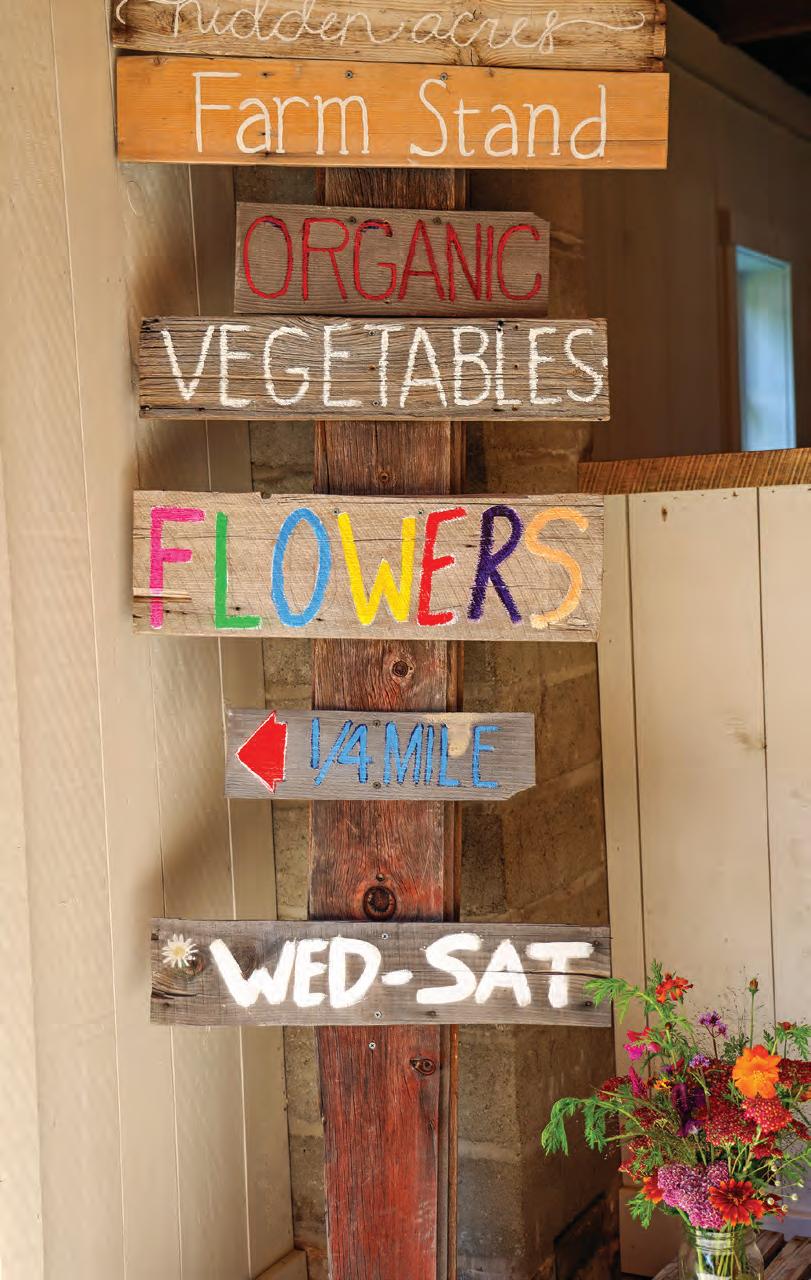 hidden acres
Farm Stand
ORGANIC
VEGETABLES
FLOWERS
1/4 MILE
WED-SAT